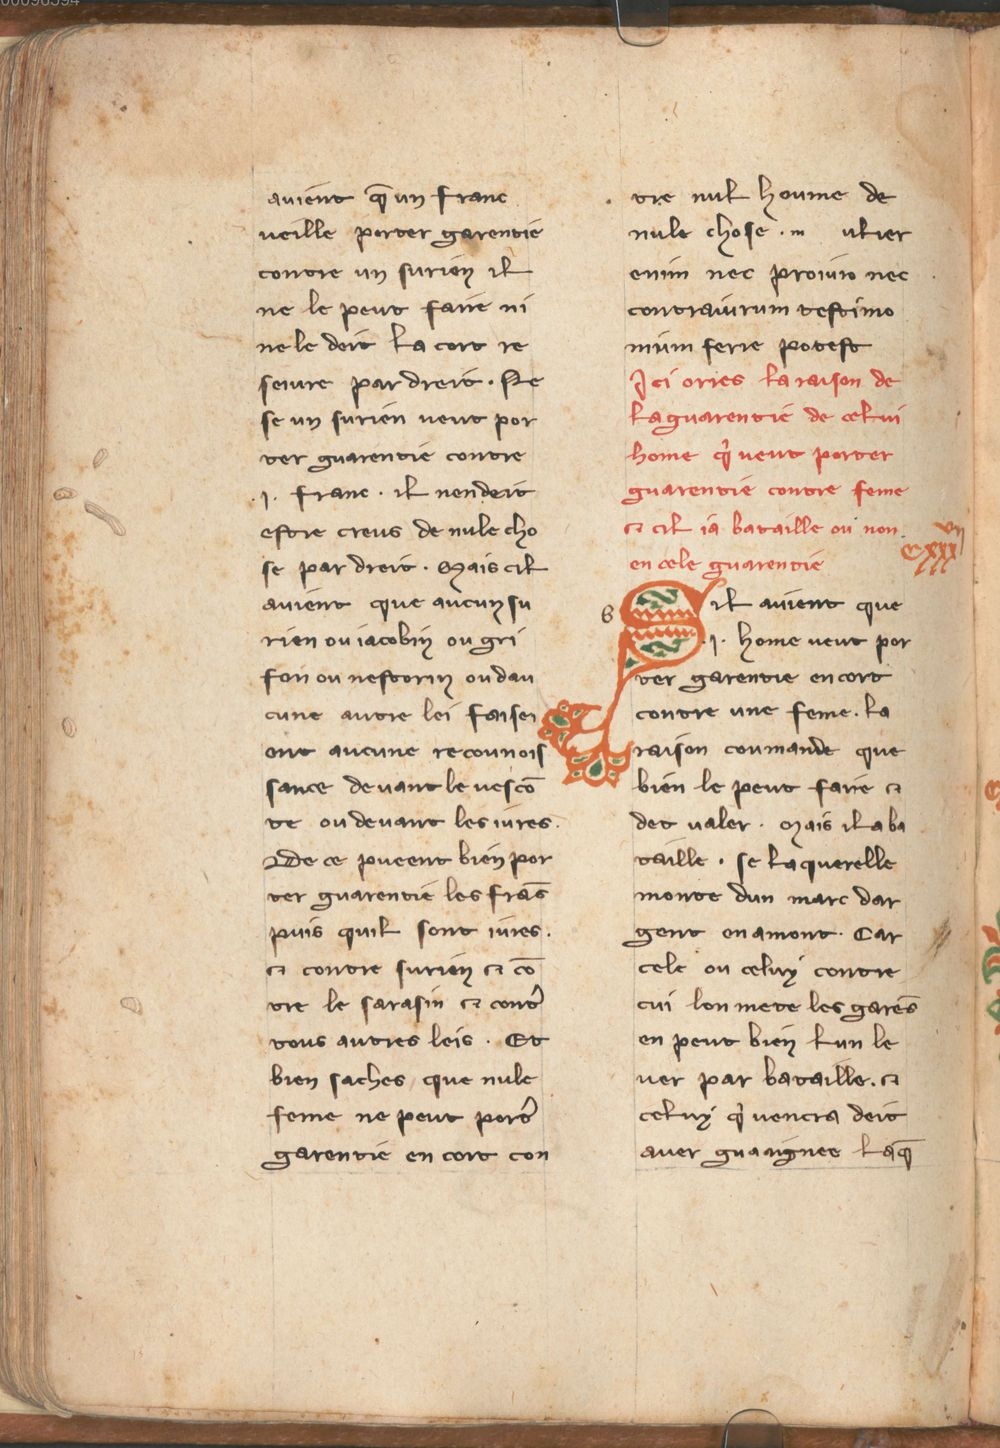 auient q̃ un franc
ueille porter garentie
contre un surien il
ne le peut faire ni
ne le deit la cort re
seiure par dreit. Ne
se un surien ueut por
ter guarentie contre
.j. franc. il nen deit
estre creus de nule cho
se par dreit. Mais cil
auient que aucun su
rien ou iacobin ou gri
fon ou nestorin ou dau
cune autre lei faisei
ent aucune reconnois
sance deuant le uescõ
te ou deuant les iures.
De ce pueent bien por
ter guarentie les frãs
puis quil sont iures.
⁊ contre surien ⁊ cõ
tre le sarasin ⁊ contᷣ
tous autres leis. Et
bien saches que nule
feme ne peut portᷣ
garentie en cort con
tre nul houme de
nule chose.
enim nec proiuio nec
contrauirum testimo
nium ferre potest
Ici ories la raison de
la guarentie de celui
home q̇ ueut porter
guarentie contre feme
⁊ cil ia bataille ou non.
en cele guarentie
cxxx
vii
S
il auient que
.j. home ueut por
ter garentie en cort
contre une feme. la
raison coumande que
bien le peut faire ⁊
det ualer. Mais il a ba
taille. se la querelle
monte dun marc dar
gent en amont. Car
cele ou celuy contre
cui lon mete les garẽs
en peut bien lun le
uer par bataille. ⁊
celuy q̇ uencra deit
auer guaignee la q̃